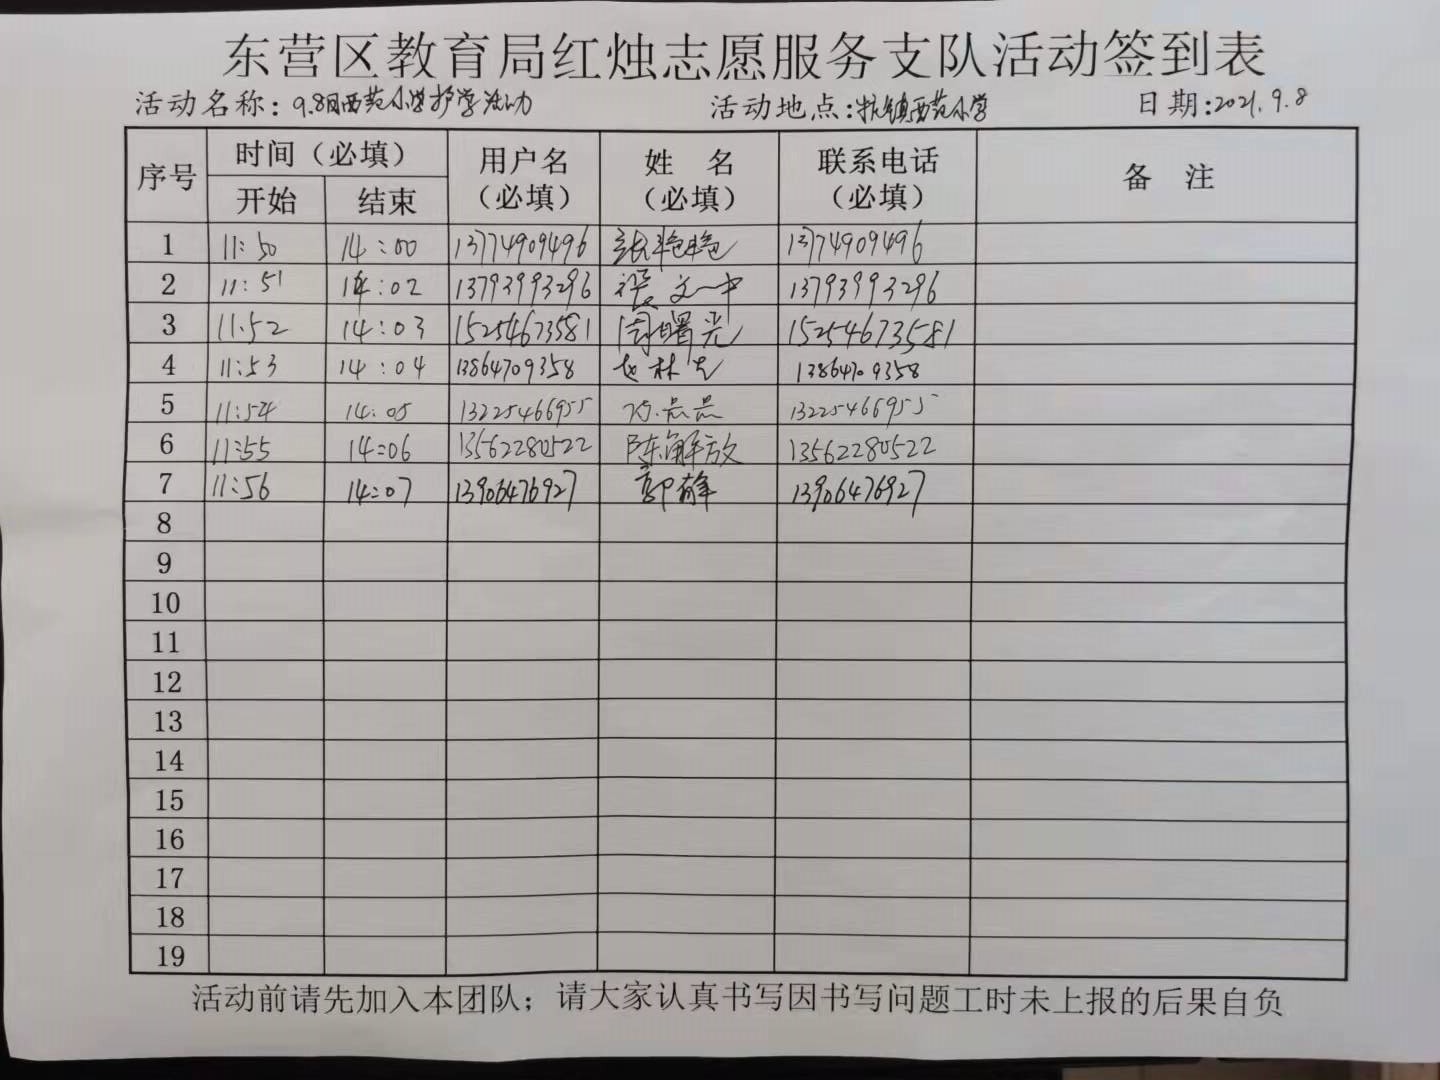 东营区教育局红烛志愿服务支队活动签到表
活动名称：9.8日西苑小学护学活动 活动地点：西苑小学 日期：2021.9.8
序号 时间（必填） 用户名（必填） 姓 名（必填） 联系电话（必填） 备 注
开始 结束
1 11:50 14:00 13774909496 张艳艳 13774909496
2 11:51 14:02 13793993296 文中 13793993296
3 11:52 14:03 15254673581 周曙光 15254673581
4 11:53 14:04 13864709358 赵林 13864709358
5 11:54 14:05 13225466955 晶晶 13225466955
6 11:55 14:06 13562280522 陈解放 13562280522
7 11:56 14:07 13906476927 郭 13906476927
8
9
10
11
12
13
14
15
16
17
18
19
活动前请先加入本团队；请大家认真书写因书写问题工时未上报的后果自负